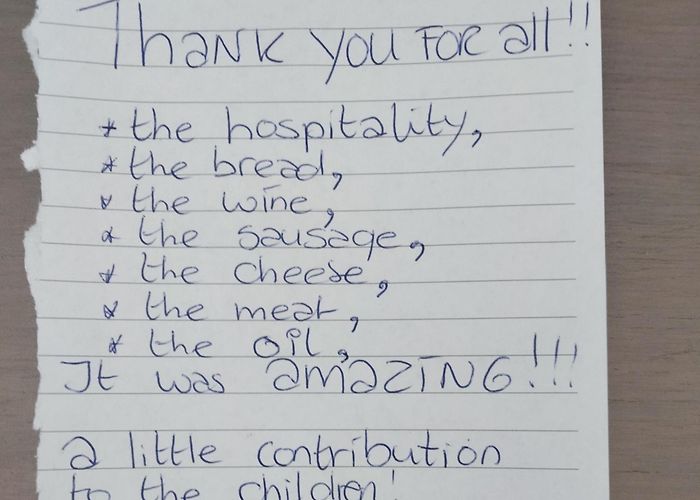 Thank you FOR all!!
* the hospitality,
* the bread,
* the wine,
* the sausage,
* the cheese,
* the meat,
* the oil,
It was amazing!!!
a little contribution
to the children!